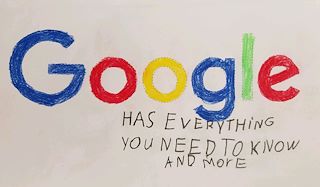 Google
HAS EVERYTHING
YOU NEED TO KNOW
AND MORE